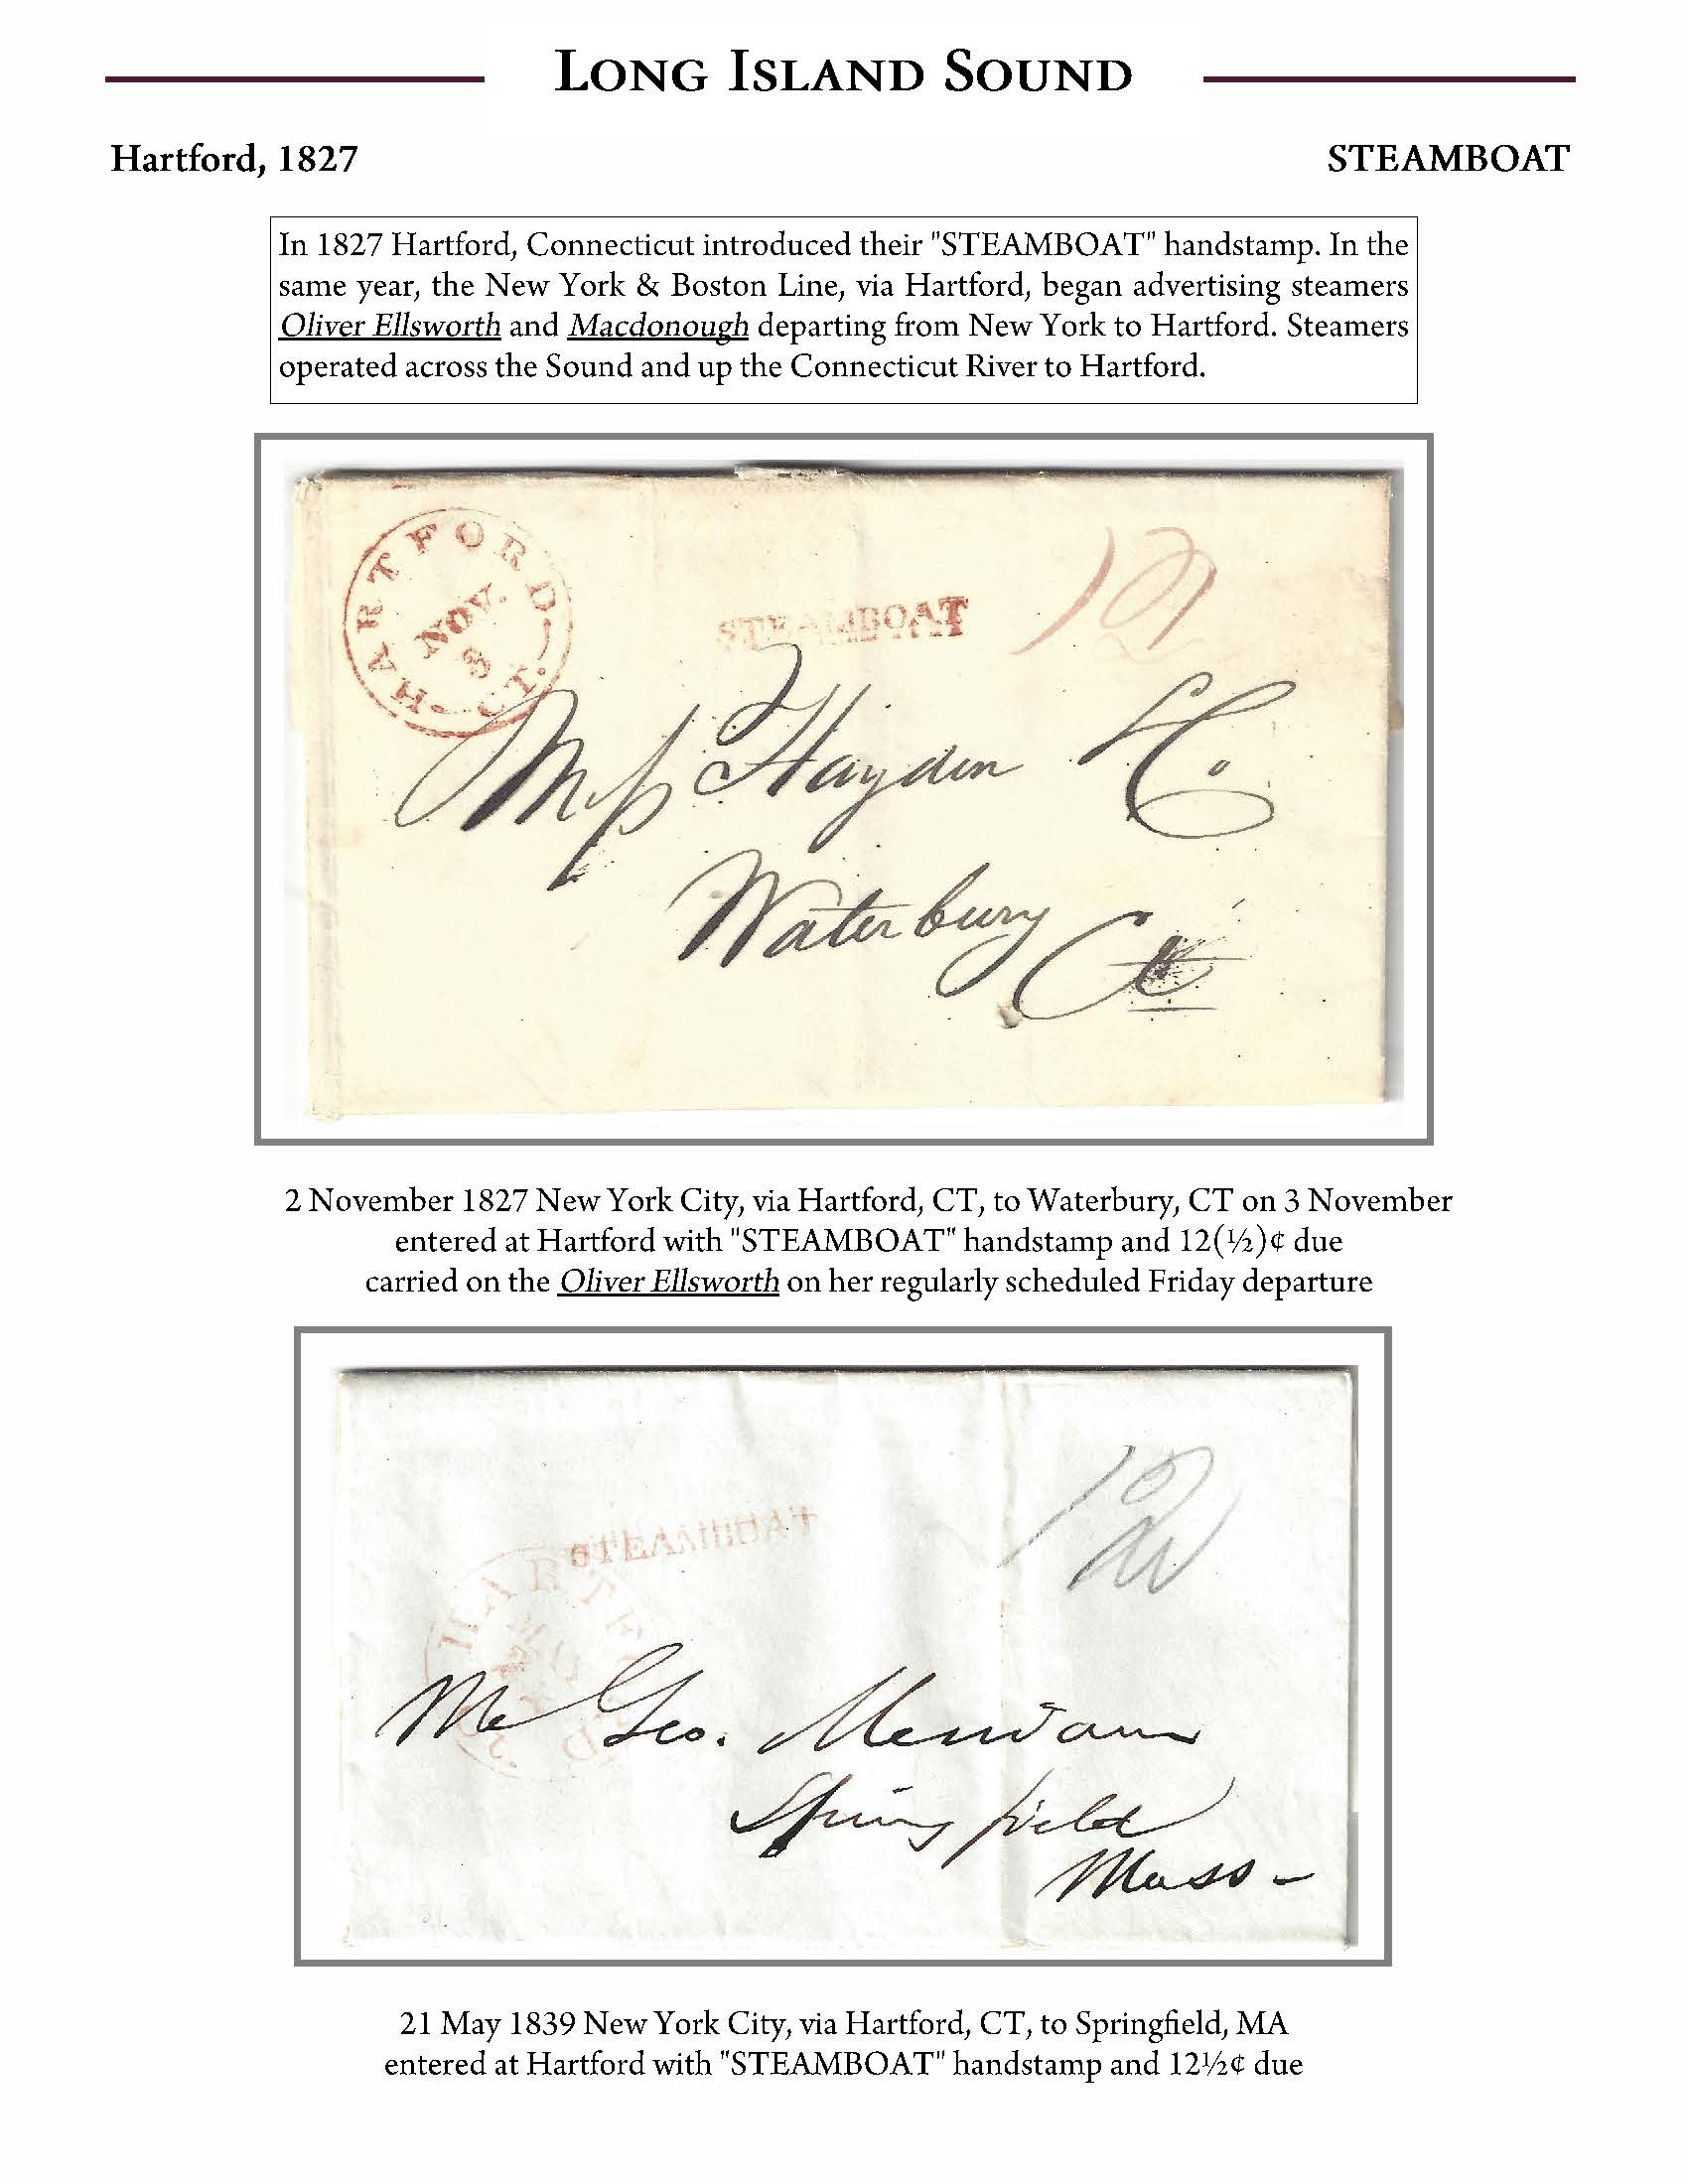 LONG ISLAND SOUND
Hartford, 1827
STEAMBOAT
In 1827 Hartford, Connecticut introduced their "STEAMBOAT" handstamp. In the
same year, the New York & Boston Line, via Hartford, began advertising steamers
Oliver Ellsworth and Macdonough departing from New York to Hartford. Steamers
operated across the Sound and up the Connecticut River to Hartford.
HARTFORD CT.
NOV.
3
STEAMBOAT
12
Mess Hayden & Co
Waterbury
Ct
2 November 1827 New York City, via Hartford, CT, to Waterbury, CT on 3 November
entered at Hartford with "STEAMBOAT" handstamp and 12(½)¢ due
carried on the Oliver Ellsworth on her regularly scheduled Friday departure
STEAMBOAT
HARTFORD
12½
Mr Geo. Merriam
Springfield
Mass -
21 May 1839 New York City, via Hartford, CT, to Springfield, MA
entered at Hartford with "STEAMBOAT" handstamp and 12½¢ due